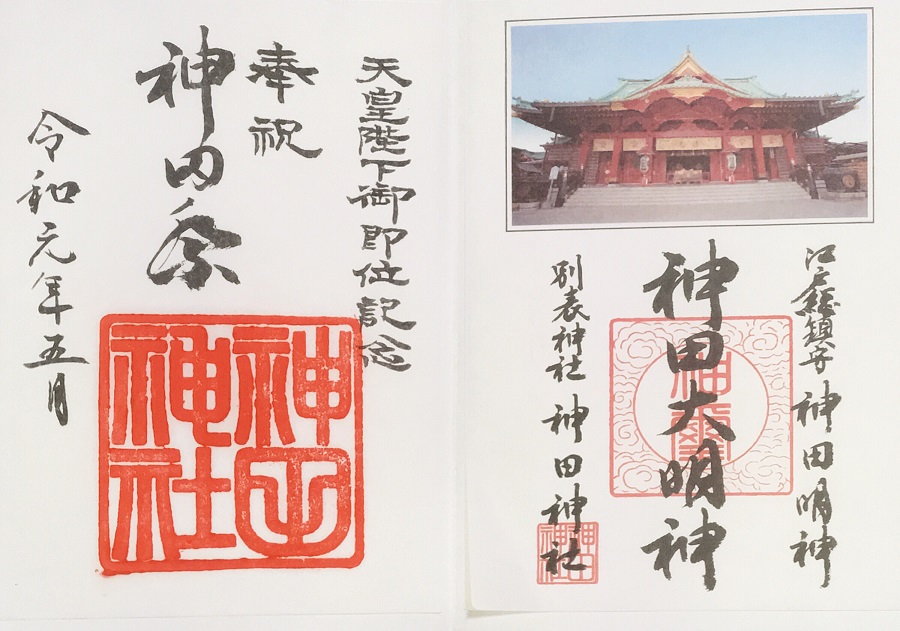 天皇陛下御即位記念
奉祝
神田祭
令和元年五月
神田
神社
江戸總鎮守 神田明神
神田大明神
神璽
別表神社 神田神社
神田
神社